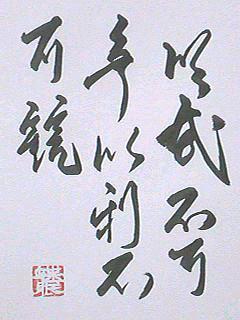 以武不可
争以利不
可競